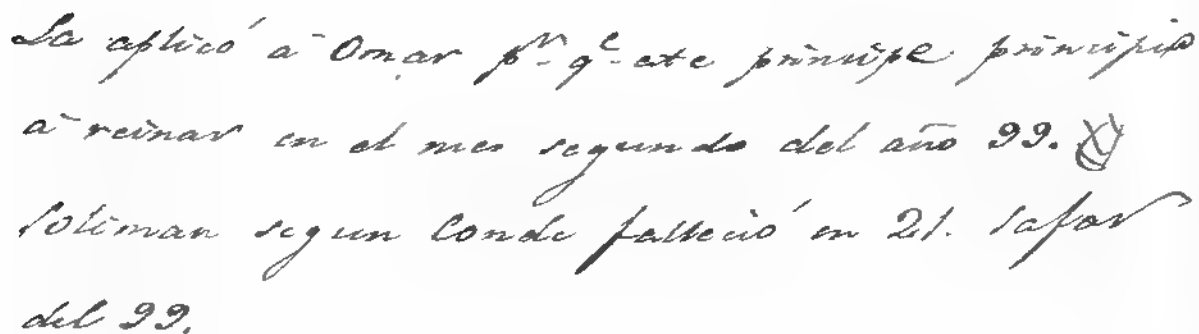 La aplicó á Omar pr. qe. este principe principio
á reinar en el mes segundo del año 99.
Soliman segun Conde falleció en 21. Safar
del 99.